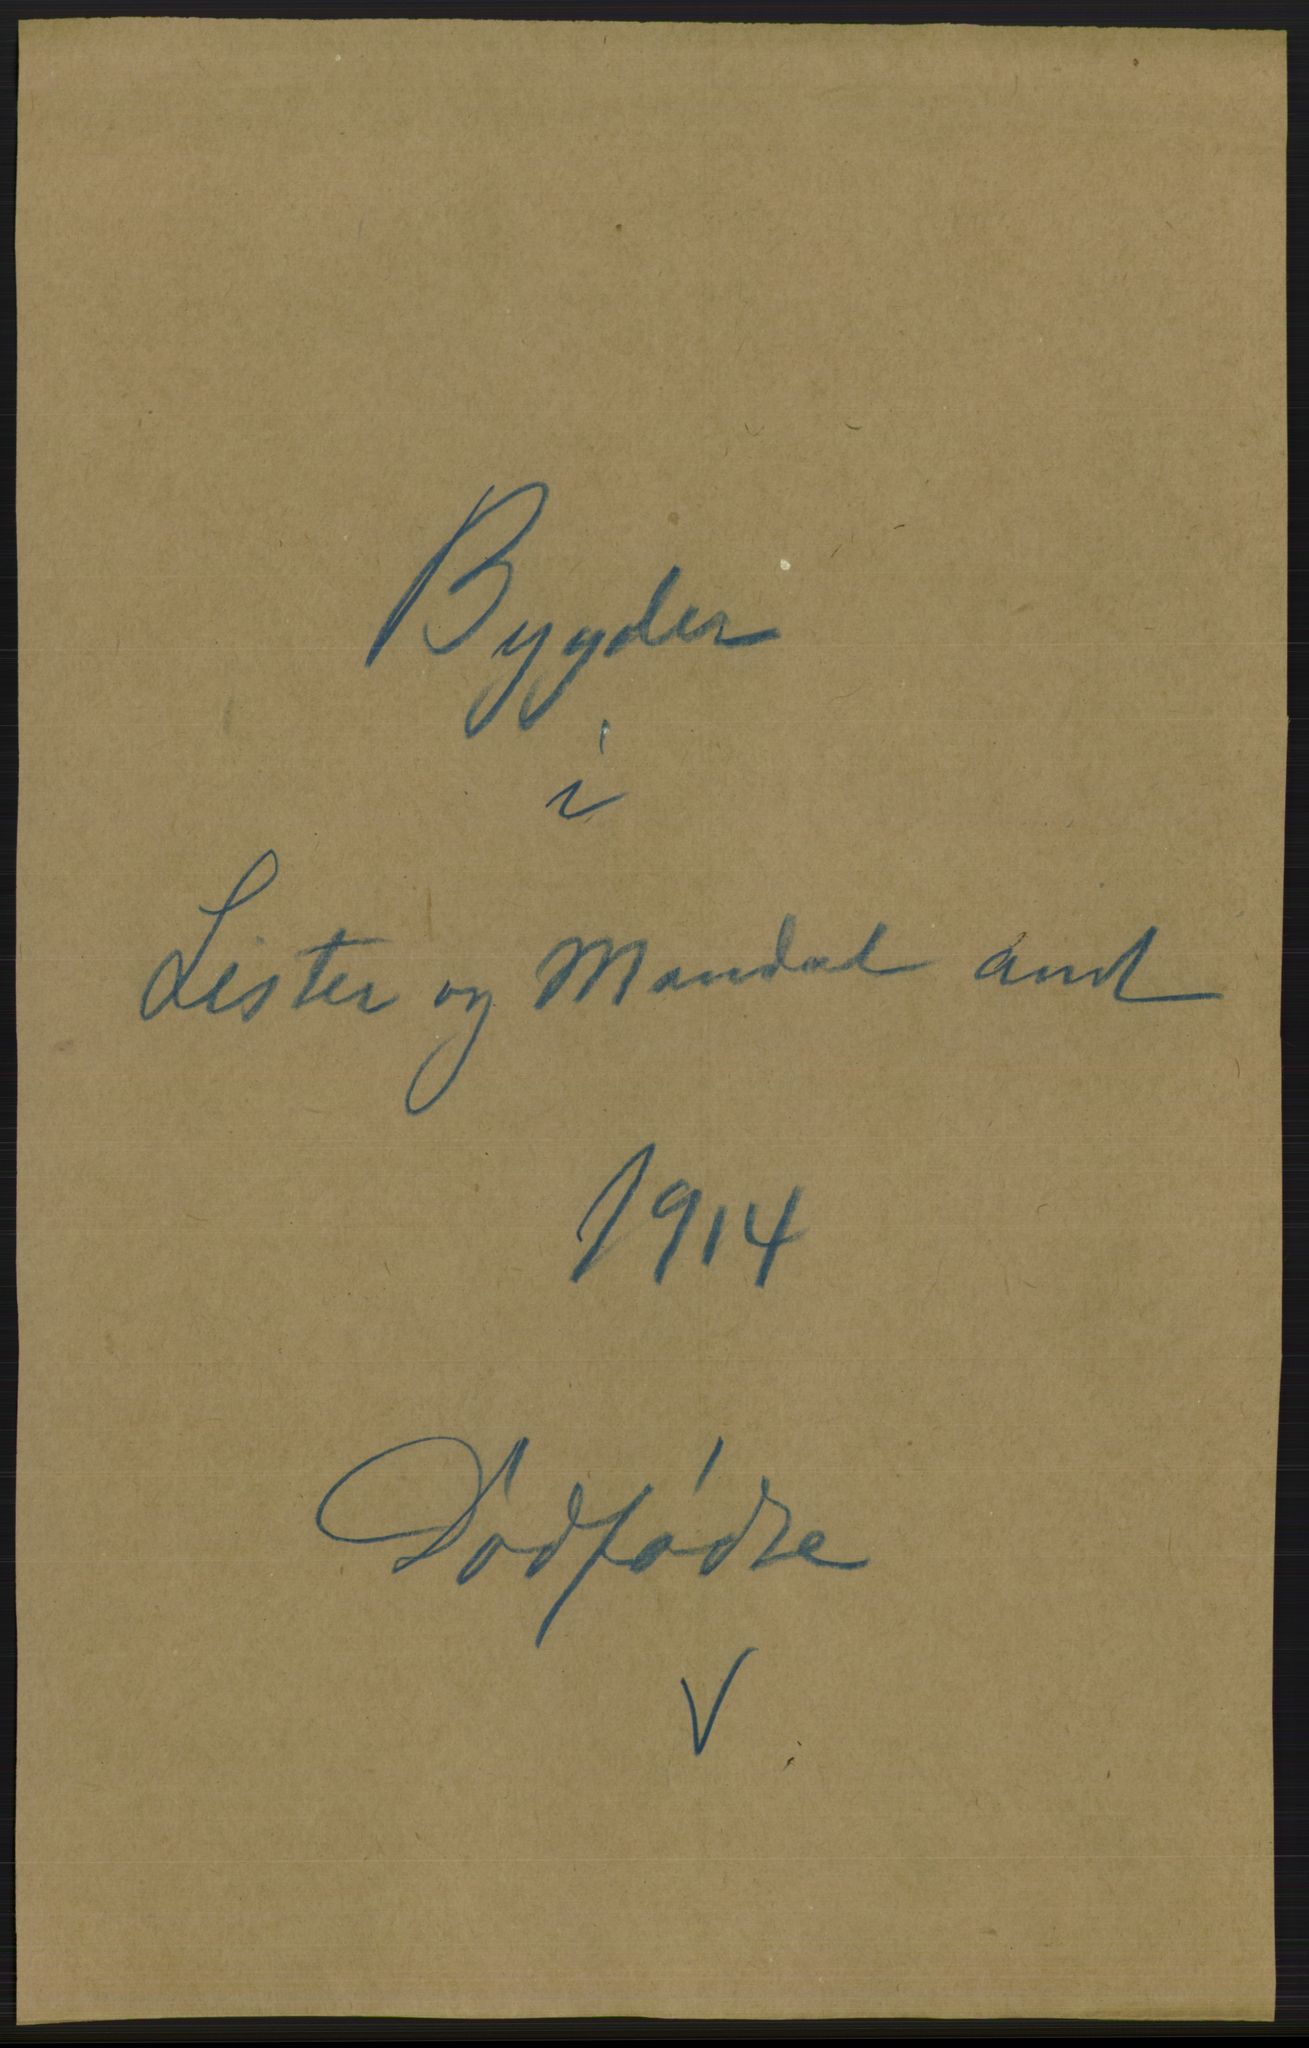 Bygder
i
Lister og Mandal amt
1914
Dødfødte
V